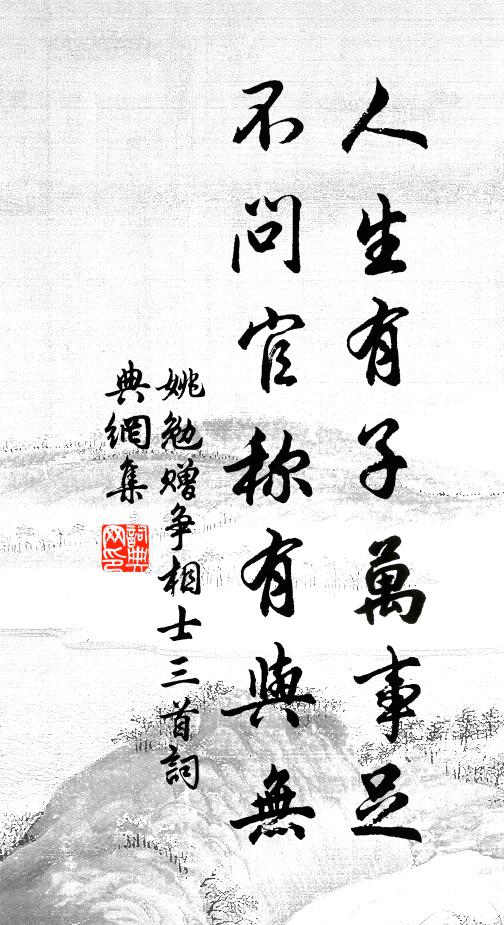 人生有子萬事足
不問官称有與無
姚勉赠争相士三首詞
典網集
詞典
网印